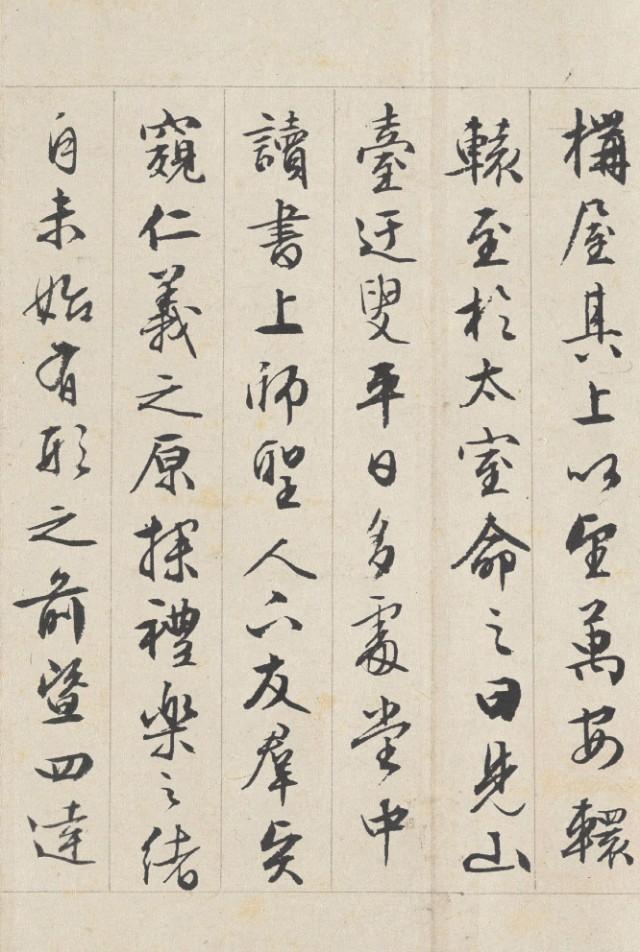 構屋其上以望萬安轘
轅至於太室命之曰見山
臺迂叟平日多處堂中
讀書上師聖人下友羣賢
窺仁義之原探禮樂之緒
自未始有形之前暨四達